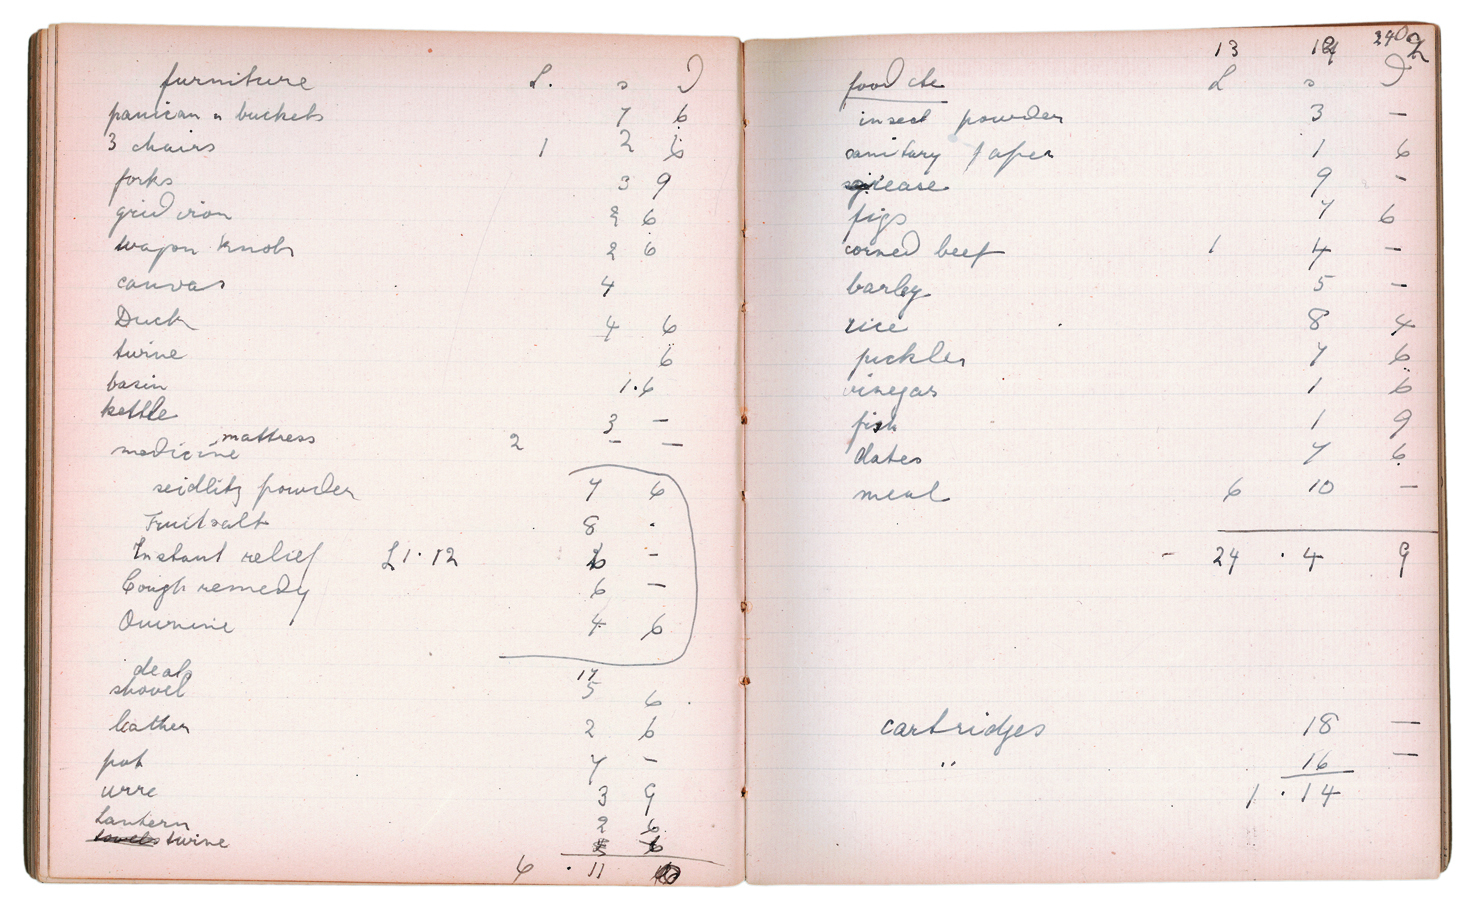 furniture £. s D
panican & buckets 7 6
3 chairs 1 2 6
forks 3 9
grid iron 2 6
wagon knobs 2 6
canvas 4
Duck 4 6
twine 6
basin 1.6
kettle 3 —
mattress 2 — —
medicine
seidlitz powder 7 6
Fruitsalt 8 .
Instant relief £1.12 6 —
Cough remedy 6 —
Quinine 4 6
deal 17
shovel 5 6
leather 2 6
pot 7 —
wire 3 9
Lantern 2 6
twine 6
6 . 11
13 240
food etc £ s D
insect powder 3 —
sanitary paper 1 6
grease 9 -
figs 7 6
corned beef 1 4 —
barley 5 —
rice 8 4
pickles 7 6
vinegar 1 6
fish 1 9
dates 7 6
meal 6 10 —
- 24 . 4 9
cartridges 18 —
" 16 —
1 . 14